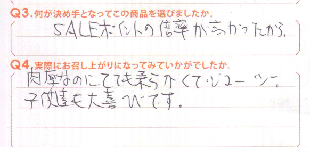 Q3.何が決め手となってこの商品を選びましたか。
SALEポイントの倍率が高かったから
Q4.実際にお召し上がりになってみていかがでしたか。
肉厚なのにとても柔らかくてジューシー。
子供達も大喜びです。